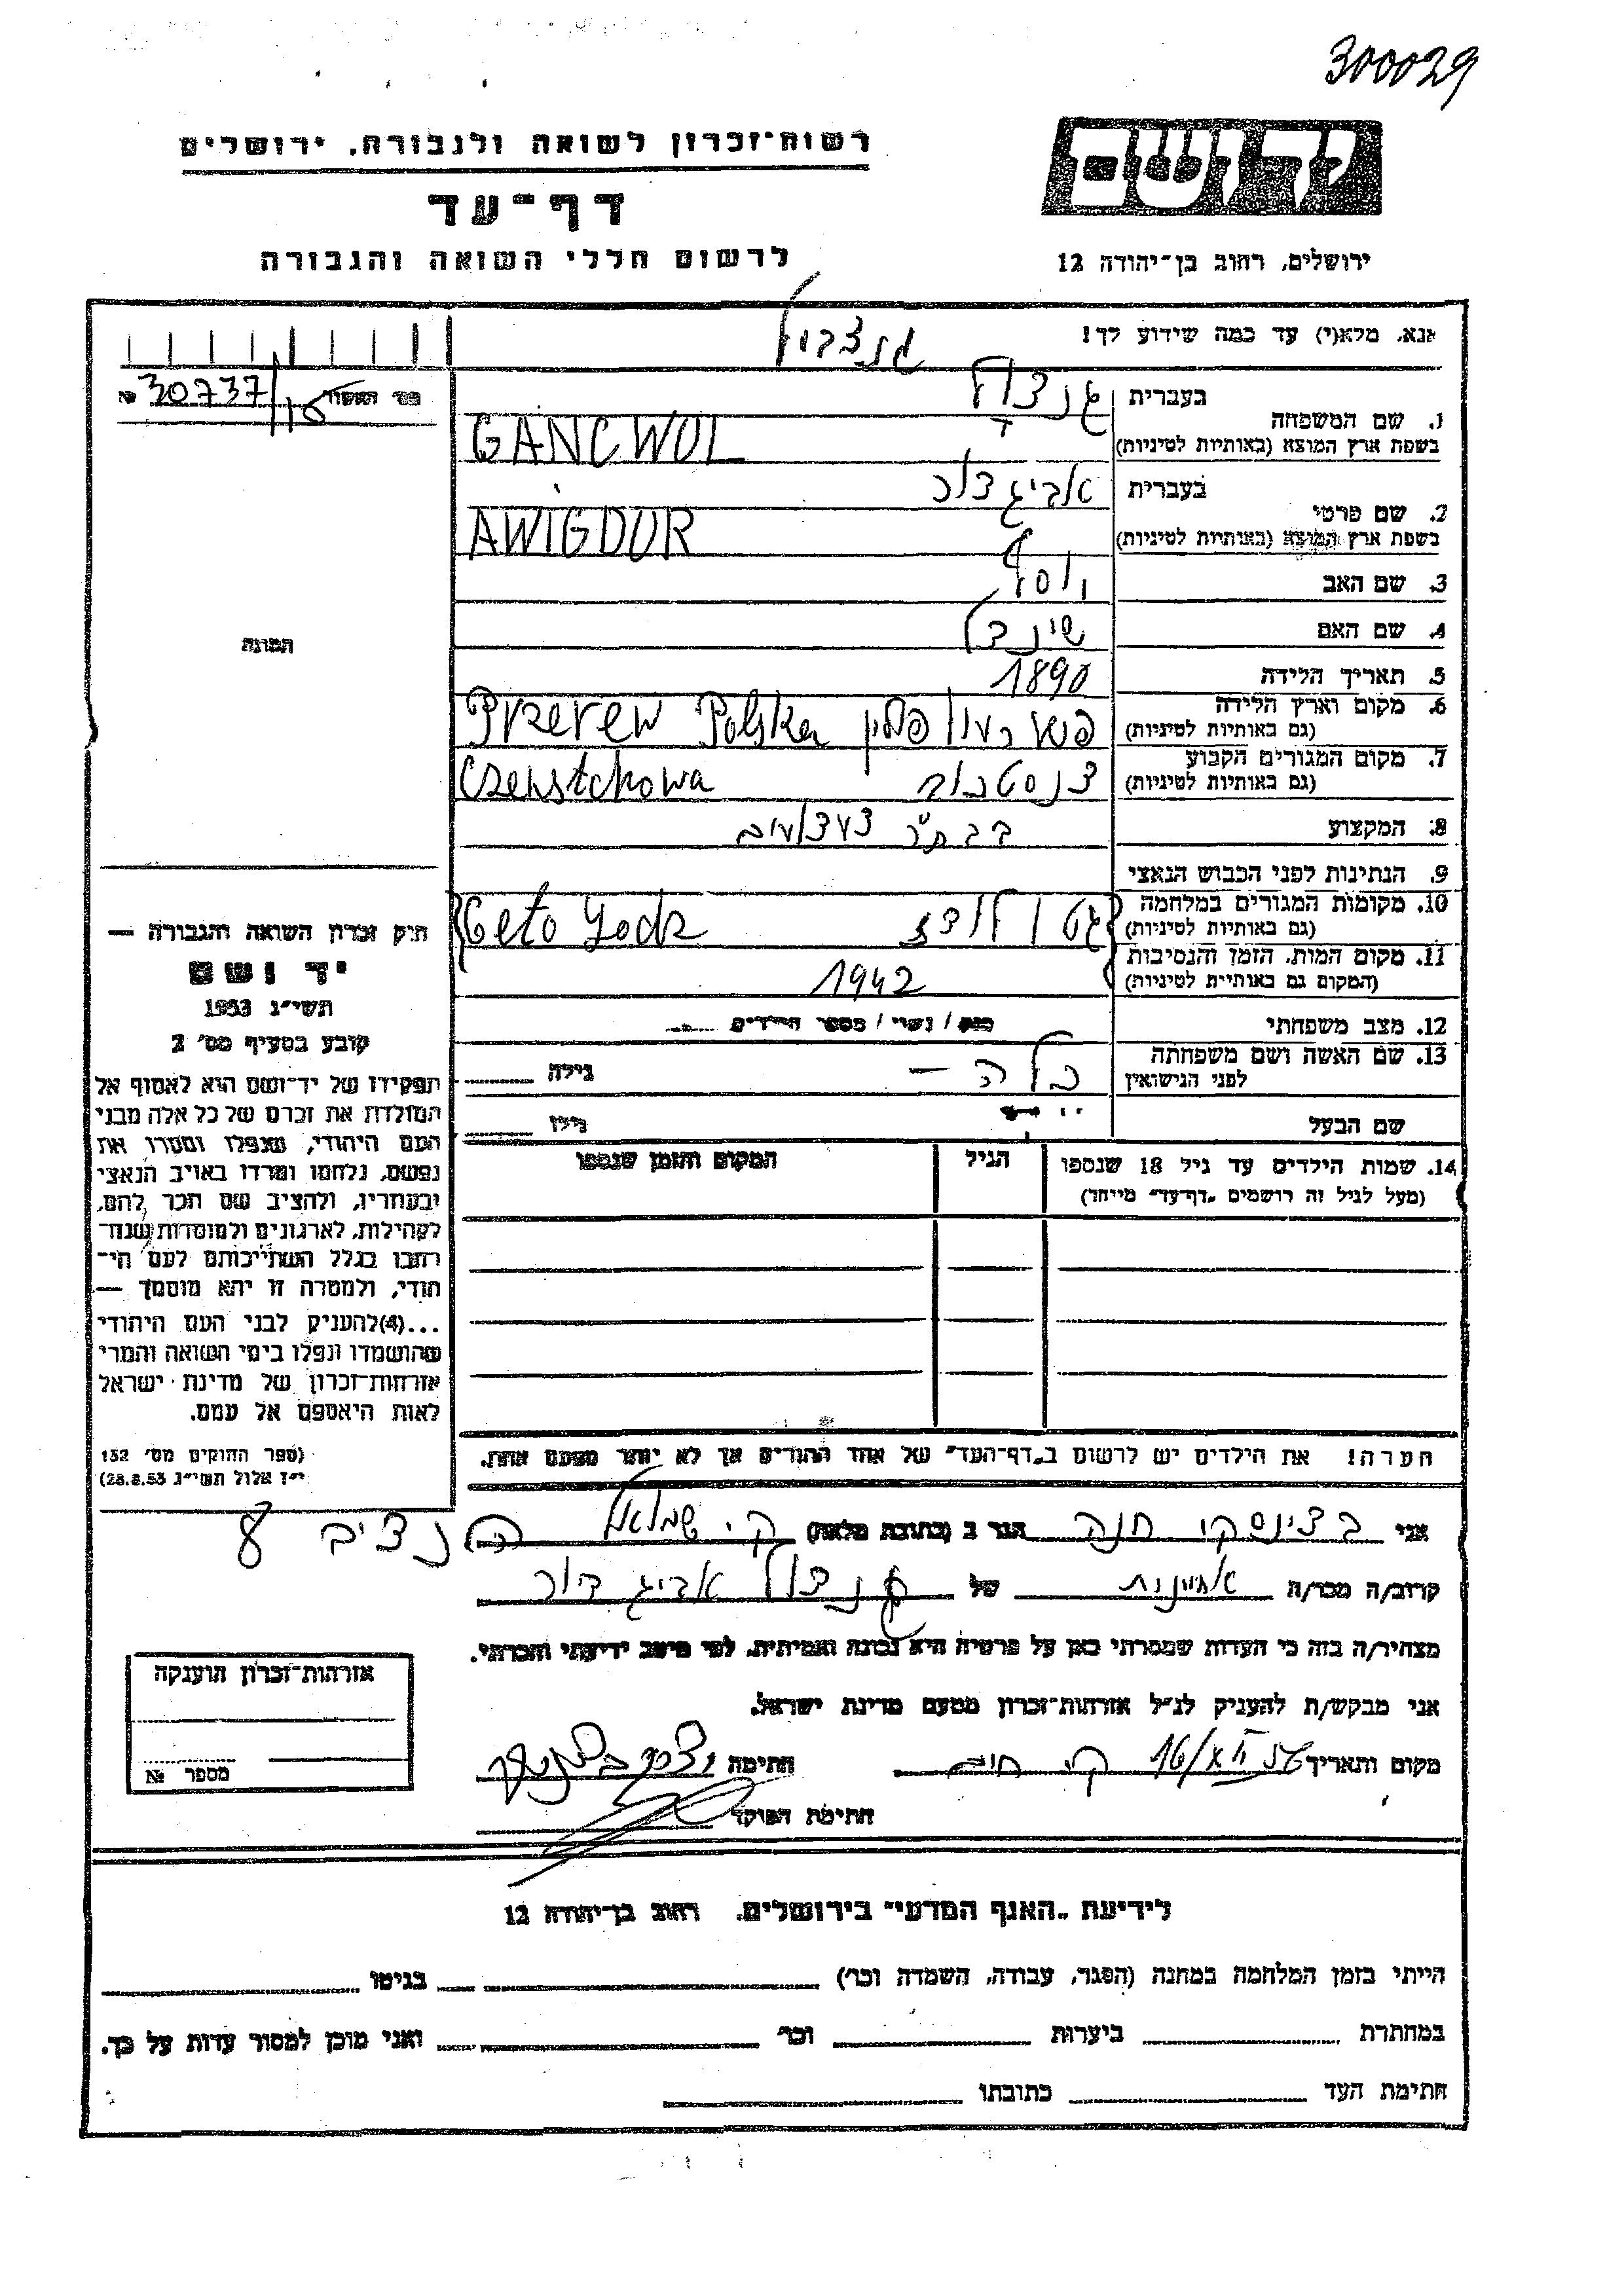 300029
רשות־זכרון לשואה ולגבורה, ירושלים
דף־עד
לרשום חללי השואה והגבורה
יד ושם
ירושלים, רחוב בן־יהודה 12
אנא, מלא(י) עד כמה שידוע לך!
גנצבול
№ 30737/15
1. שם המשפחה בעברית גנצול
בשפת ארץ המוצא (באותיות לטיניות) GANCWOL
2. שם פרטי בעברית אביגדור
בשפת ארץ המוצא (באותיות לטיניות) AWIGDOR
3. שם האב יוסף
4. שם האם שינדל
5. תאריך הלידה 1890
6. מקום וארץ הלידה פולין Przerew Polska
(גם באותיות לטיניות)
7. מקום המגורים הקבוע צנסטכוב Czenstchowa
(גם באותיות לטיניות)
8. המקצוע
9. הנתינות לפני הכבוש הנאצי
10. מקומות המגורים במלחמה גטו לודז Geto Lodz
(גם באותיות לטיניות)
11. מקום המות, הזמן והנסיבות 1942
(המקום גם באותיות לטיניות)
12. מצב משפחתי רוק / נשוי / מספר הילדים
13. שם האשה ושם משפחתה בלה – גילה
לפני הנישואין
שם הבעל גילו
14. שמות הילדים עד גיל 18 שנספו הגיל המקום והזמן שנספו
(מעל לגיל זה רושמים „דף־עד” מייחד)
הערה! את הילדים יש לרשום ב„דף־העד” של אחד ההורים אך לא יותר מפעם אחת.
תמונה
חוק זכרון השואה והגבורה —
יד ושם
תשי״ג 1953
קובע בסעיף מס׳ 2
תפקידו של יד־ושם הוא לאסוף אל
המולדת את זכרם של כל אלה מבני
העם היהודי, שנפלו ומסרו את
נפשם, נלחמו ומרדו באויב הנאצי
ובעוזריו, ולהציב שם וזכר להם,
לקהילות, לארגונים ולמוסדות שנח־
רבו בגלל השתייכותם לעם הי־
הודי, ולמטרה זו יהא מוסמך —
...(4)להעניק לבני העם היהודי
שהושמדו ונפלו בימי השואה והמרי
אזרחות־זכרון של מדינת ישראל
לאות היאספם אל עמם.
(ספר החוקים מס׳ 132
י״ז אלול תשי״ג 28.8.53)
אני חנה הגר ב (כתובת מלאה) ק׳ שמואל הנציב 8
קרוב/ה מכר/ה אחיינות של גנצול אביגדור
מצהיר/ה בזה כי העדות שמסרתי כאן על פרטיה היא נכונה ואמיתית, לפי מיטב ידיעתי והכרתי.
אני מבקש/ת להעניק לנ״ל אזרחות־זכרון מטעם מדינת ישראל.
מקום ותאריך ק׳ חתימה
חתימת הפוקד
אזרחות־זכרון הוענקה
מספר №
לידיעת „האגף המדעי” בירושלים, רחוב בן־יהודה 12
הייתי בזמן המלחמה במחנה (הסגר, עבודה, השמדה וכו׳) בגיטו
במחתרת ביערות וכו׳ ואני מוכן למסור עדות על כך.
חתימת העד כתובתו